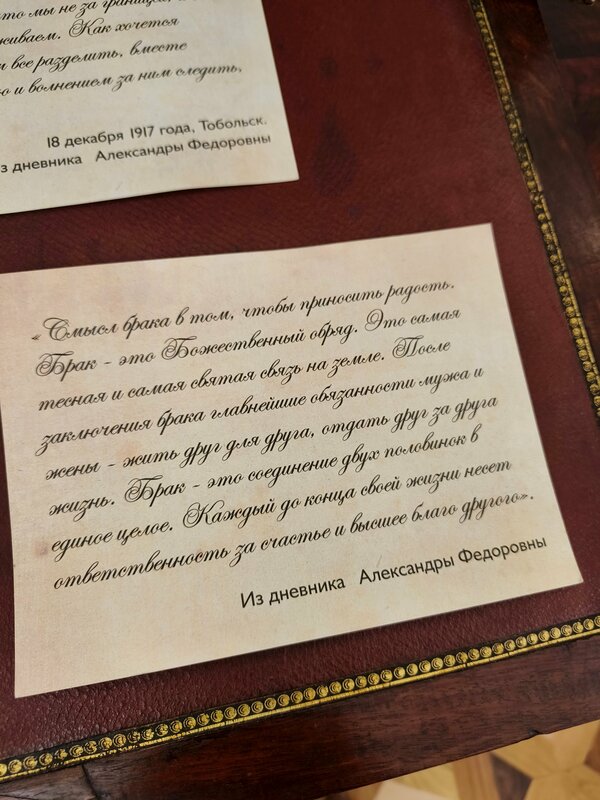 что мы не за границей,
живаем. Как хочется
все разделить, вместе
ю и волнением за ним следить,
18 декабря 1917 года, Тобольск.
Из дневника Александры Федоровны
«Смысл брака в том, чтобы приносить радость.
Брак - это Божественный обряд. Это самая
тесная и самая святая связь на земле. После
заключения брака главнейшие обязанности мужа и
жены - жить друг для друга, отдать друг за друга
жизнь. Брак - это соединение двух половинок в
единое целое. Каждый до конца своей жизни несет
ответственность за счастье и высшее благо другого».
Из дневника Александры Федоровны